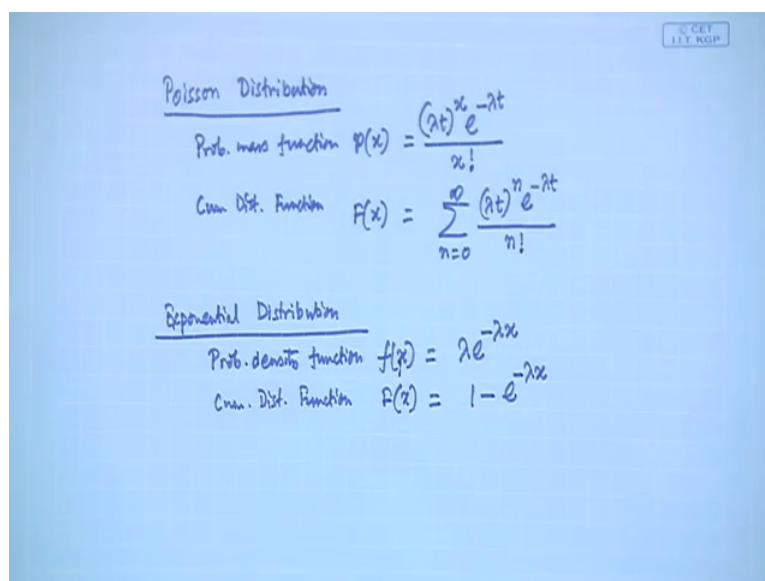 © CET
I.I.T. KGP
Poisson Distribution
Prob. mass function p(x) = (λt)^x e^-λt / x!
Cum Dist. Function F(x) = ∞ ∑ n=0 (λt)^n e^-λt / n!
Exponential Distribution
Prob. density function f(x) = λe^-λx
Cum. Dist. Function F(x) = 1 - e^-λx